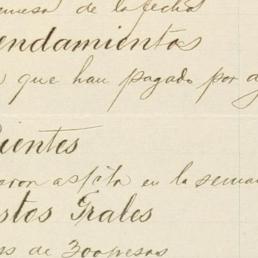 remesa de la fecha
endamientos
que han pagado por a
uientes
aron aspita en la sema
stos Grales
os de 300 pesos